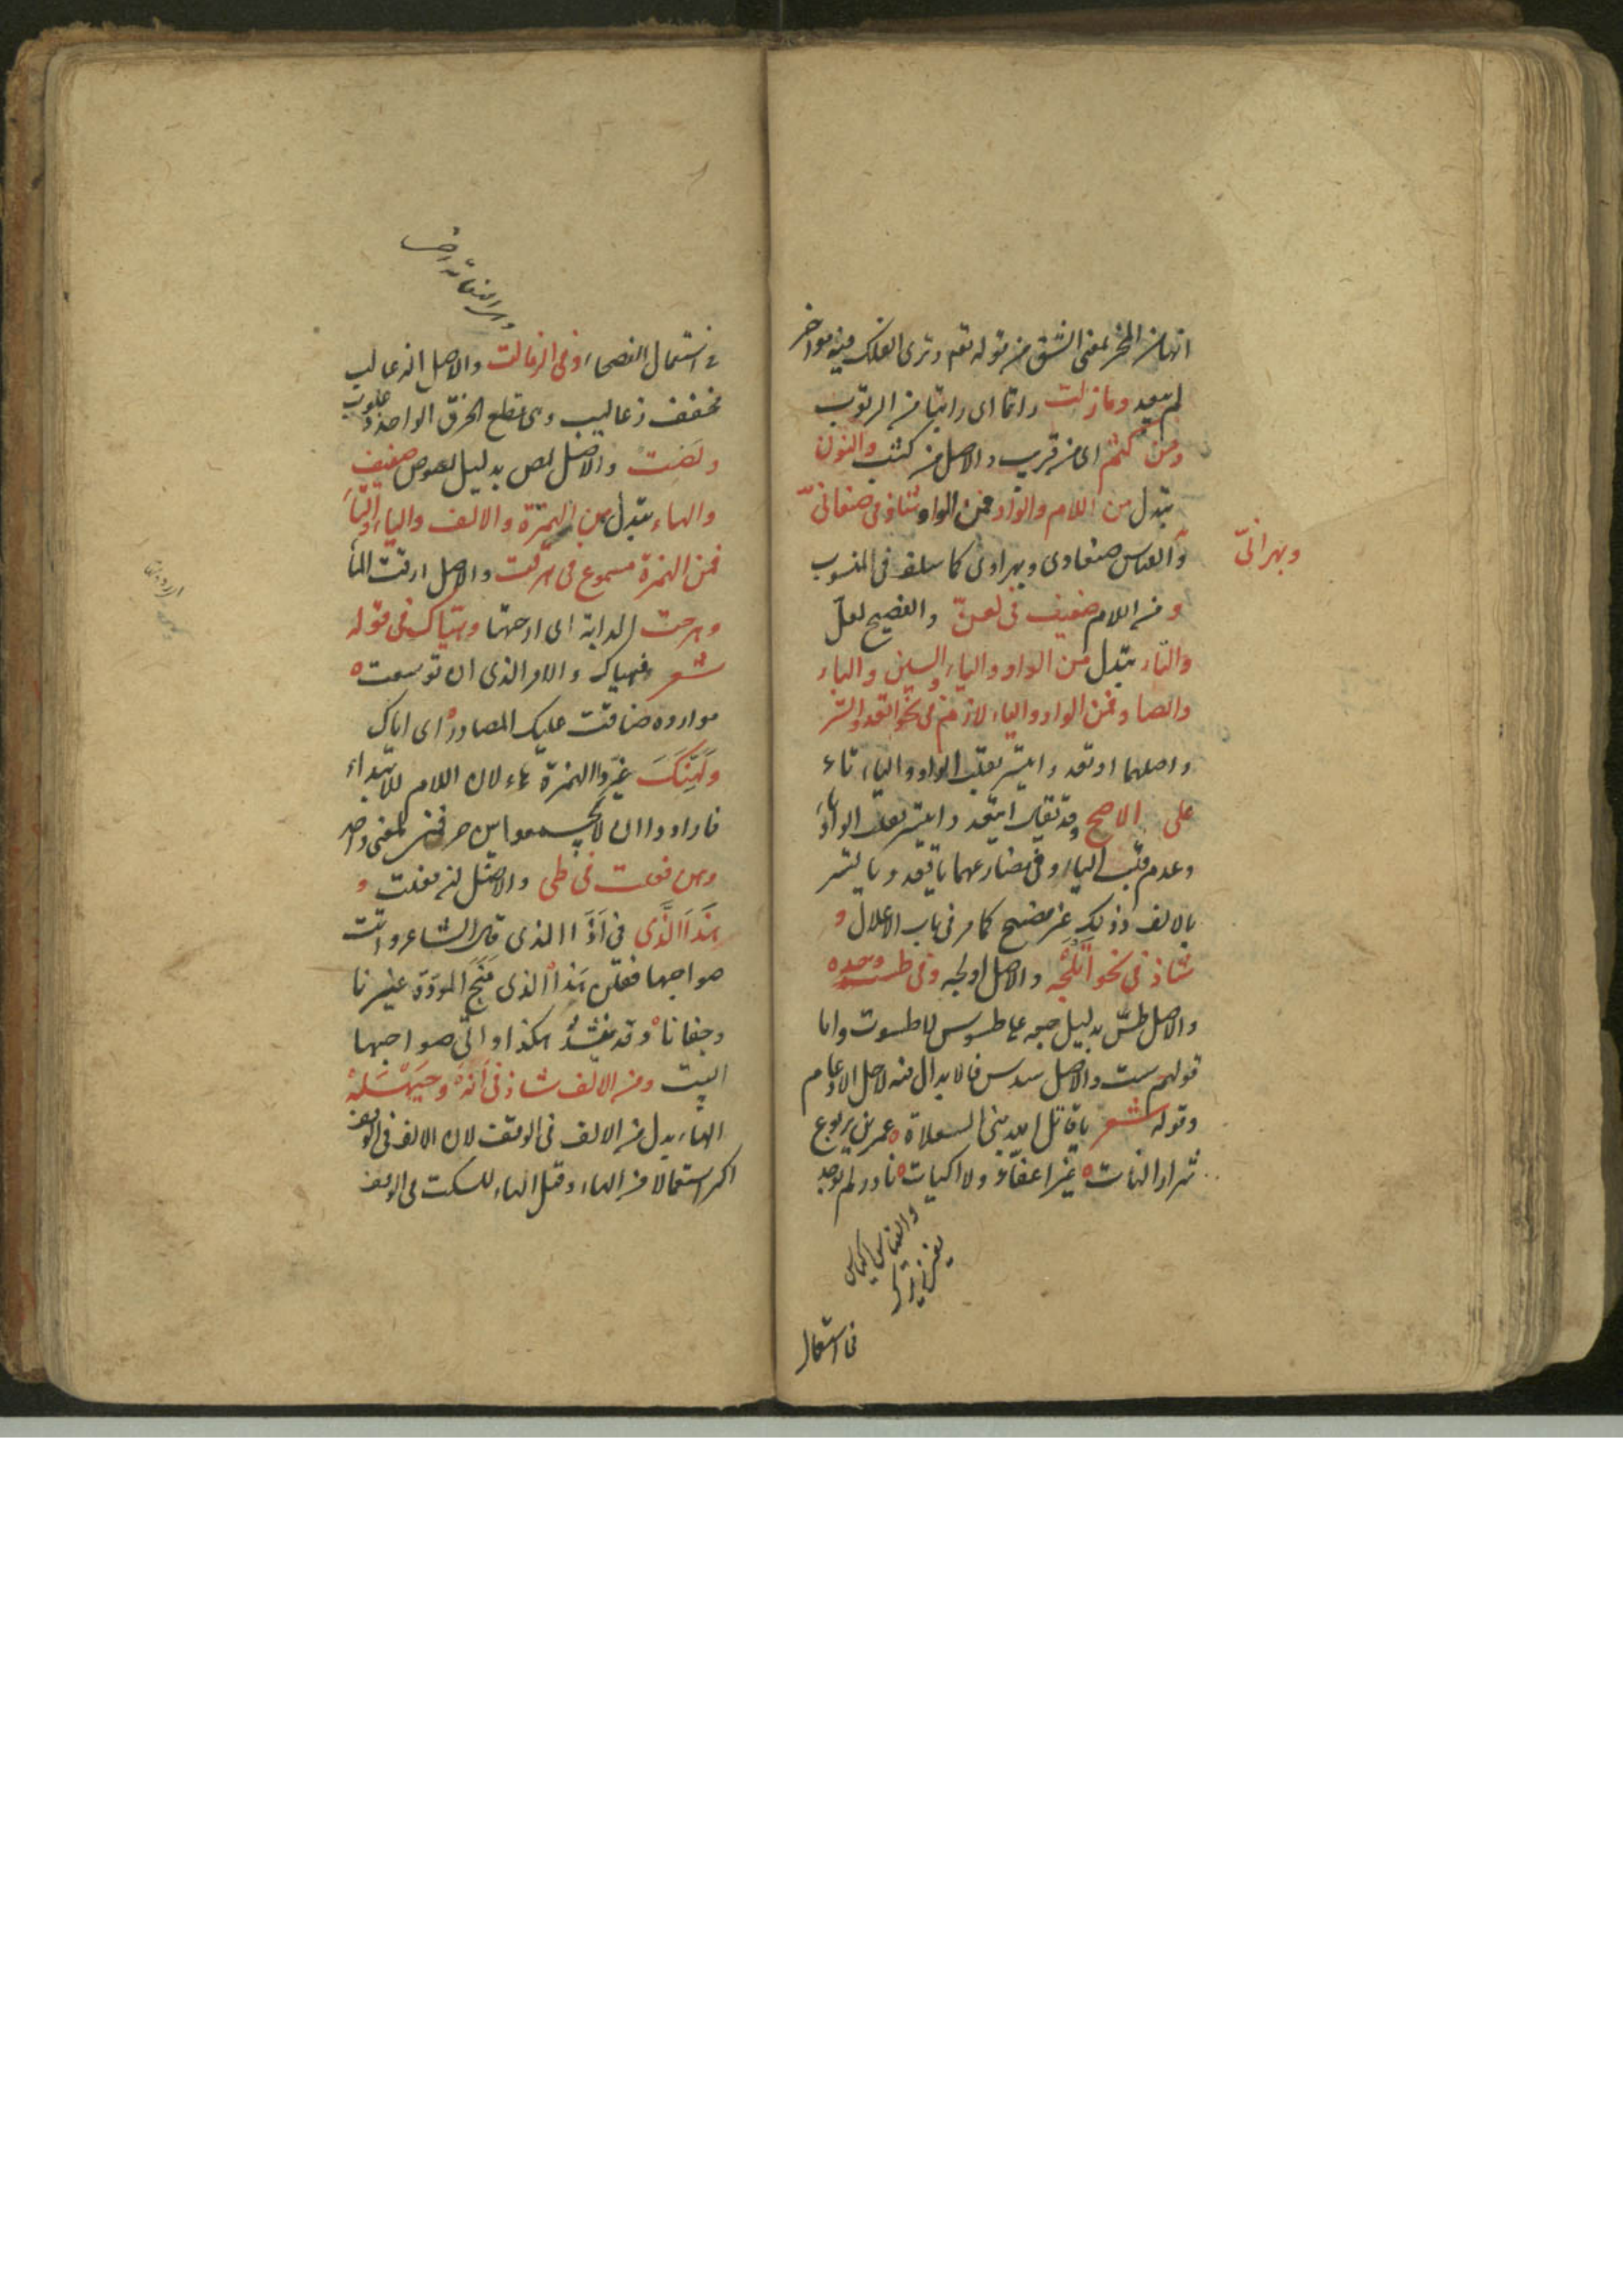 انها من المخر بمعنى الشق من قوله تعم وترى الفلك فيه مواخر
لم يبعد وما زلت راتما اى راتبا من الرتوب
ومن كثم اى من قريب والاصل من كثب والنون
تبدل من اللام والواو فمن الواو شاذ فى صنعانىّ
وبهرانىّ
والقياس صنعاوى وبهراوى كما سلف فى المنسوب
و من اللام ضعيف فى لعنّ والفصيح لعلّ
والتاء تبدل من الواو والياء والسين والباء
والصاد فمن الواو والياء لازم فى نحو اتعد واتسر
واصلهما اوتعد وايتسر بقلب الواو والياء تاء
على الاصح وقد يقال ايتعد وايتسر بقلب الواو ياء
وعدم قلب الياء وفى مضارعهما ياتعد وياتسر
بالالف وذلك غير فصيح كما مر فى باب الاعلال و
شاذ فى نحو اتلجه والاصل اولجه وفى طست وحده
والاصل طسّ بدليل جمعه على طسوس لا طسوت واما
قولهم ست والاصل سدس فالابدال فيه لاجل الادغام
وقوله شعر يا قاتل الله بنى السعلاة عمرو بن يربوع
شرار النات غير اعفاء ولا اكيات نادر لم يوجد
والقياس اكياس
فى استعمال
فى استعمال الفصحاء وفى الزعالت والاصل الزعاليب
مخفف زعاليب وهى قطع الخرق الواحد زعلوب
ولصت والاصل لص بدليل لصوص ضعيف
والهاء تبدل من الهمزة والالف والياء والتاء
فمن الهمزة مسموع فى هرقت والاصل ارقت الماء
وهرحت الدابة اى ارحتها وهياك فى قوله
شعر فهياك والامر الذى ان توسعت
موارده ضاقت عليك المصادر اى اياك
ولَهِنَّكَ غيّروا الهمزة هاء لان اللام للابتداء
فارادوا ان لا يجمعوا بين حرفين لمعنى واحد
وهن فعلت فى طى والاصل ان فعلت و
هَذَا الَّذى فى أَذَا الذى قال الشاعر واتت
صواحبها فقلن هَذَا الذى مَنَحَ المودّة غيرنا
وجفانا وقد ينشد هكذا واتى صواحبها
البيت ومن الالف شاذ فى أَنَهْ وحَيَّهَلَهْ
الهاء بدل من الالف فى الوقف لان الالف فى الوقف
اكثر استعمالا من الهاء وقيل الهاء للسكت فى الوقف